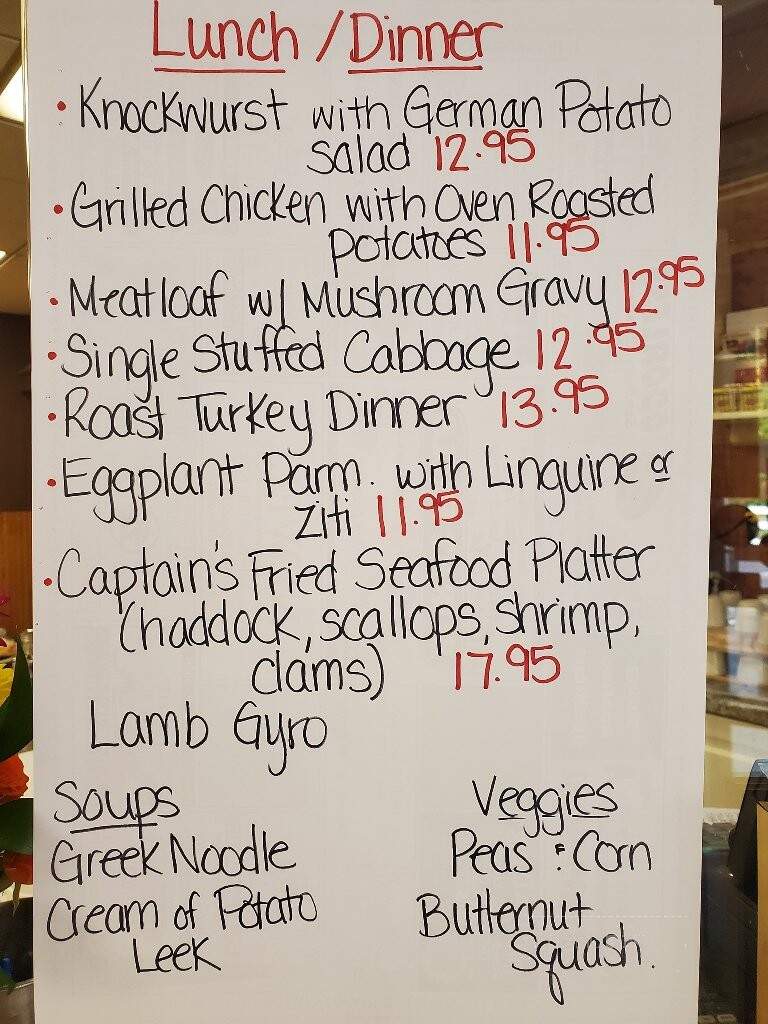 Lunch / Dinner
• Knockwurst with German Potato
salad 12.95
• Grilled Chicken with Oven Roasted
potatoes 11.95
• Meatloaf w/ Mushroom Gravy 12.95
• Single Stuffed Cabbage 12.95
• Roast Turkey Dinner 13.95
• Eggplant Parm. with Linguine or
Ziti 11.95
• Captain's Fried Seafood Platter
(haddock, scallops, shrimp,
clams) 17.95
Lamb Gyro
Soups
Greek Noodle
Cream of Potato
Leek
Veggies
Peas & Corn
Butternut
Squash.